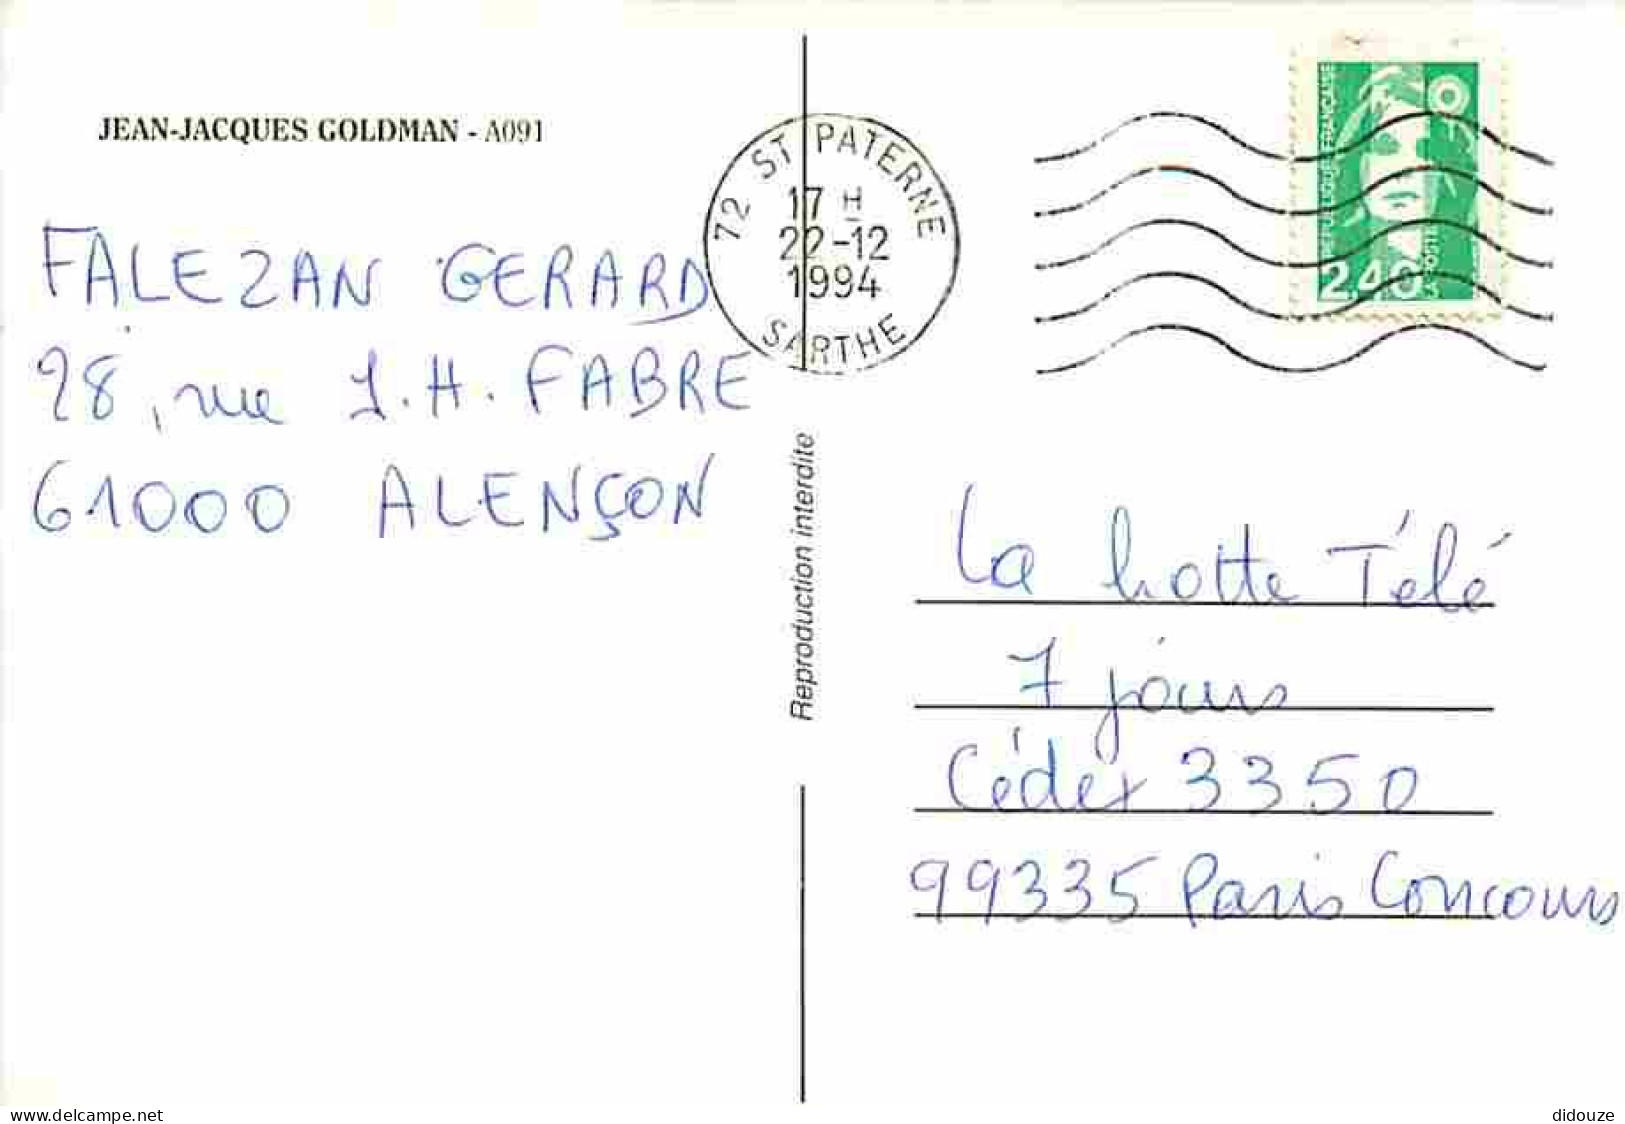 JEAN-JACQUES GOLDMAN - A091
FALEZAN GERARD
28, rue J.H. FABRE
61000 ALENÇON
72 ST PATERNE
17 H
22-12
1994
SARTHE
REPUBLIQUE FRANÇAISE
2,40
LA POSTE
Reproduction interdite
La hotte Télé
7 jours
Cédex 3350
99335 Paris Concours
www.delcampe.net
didouze